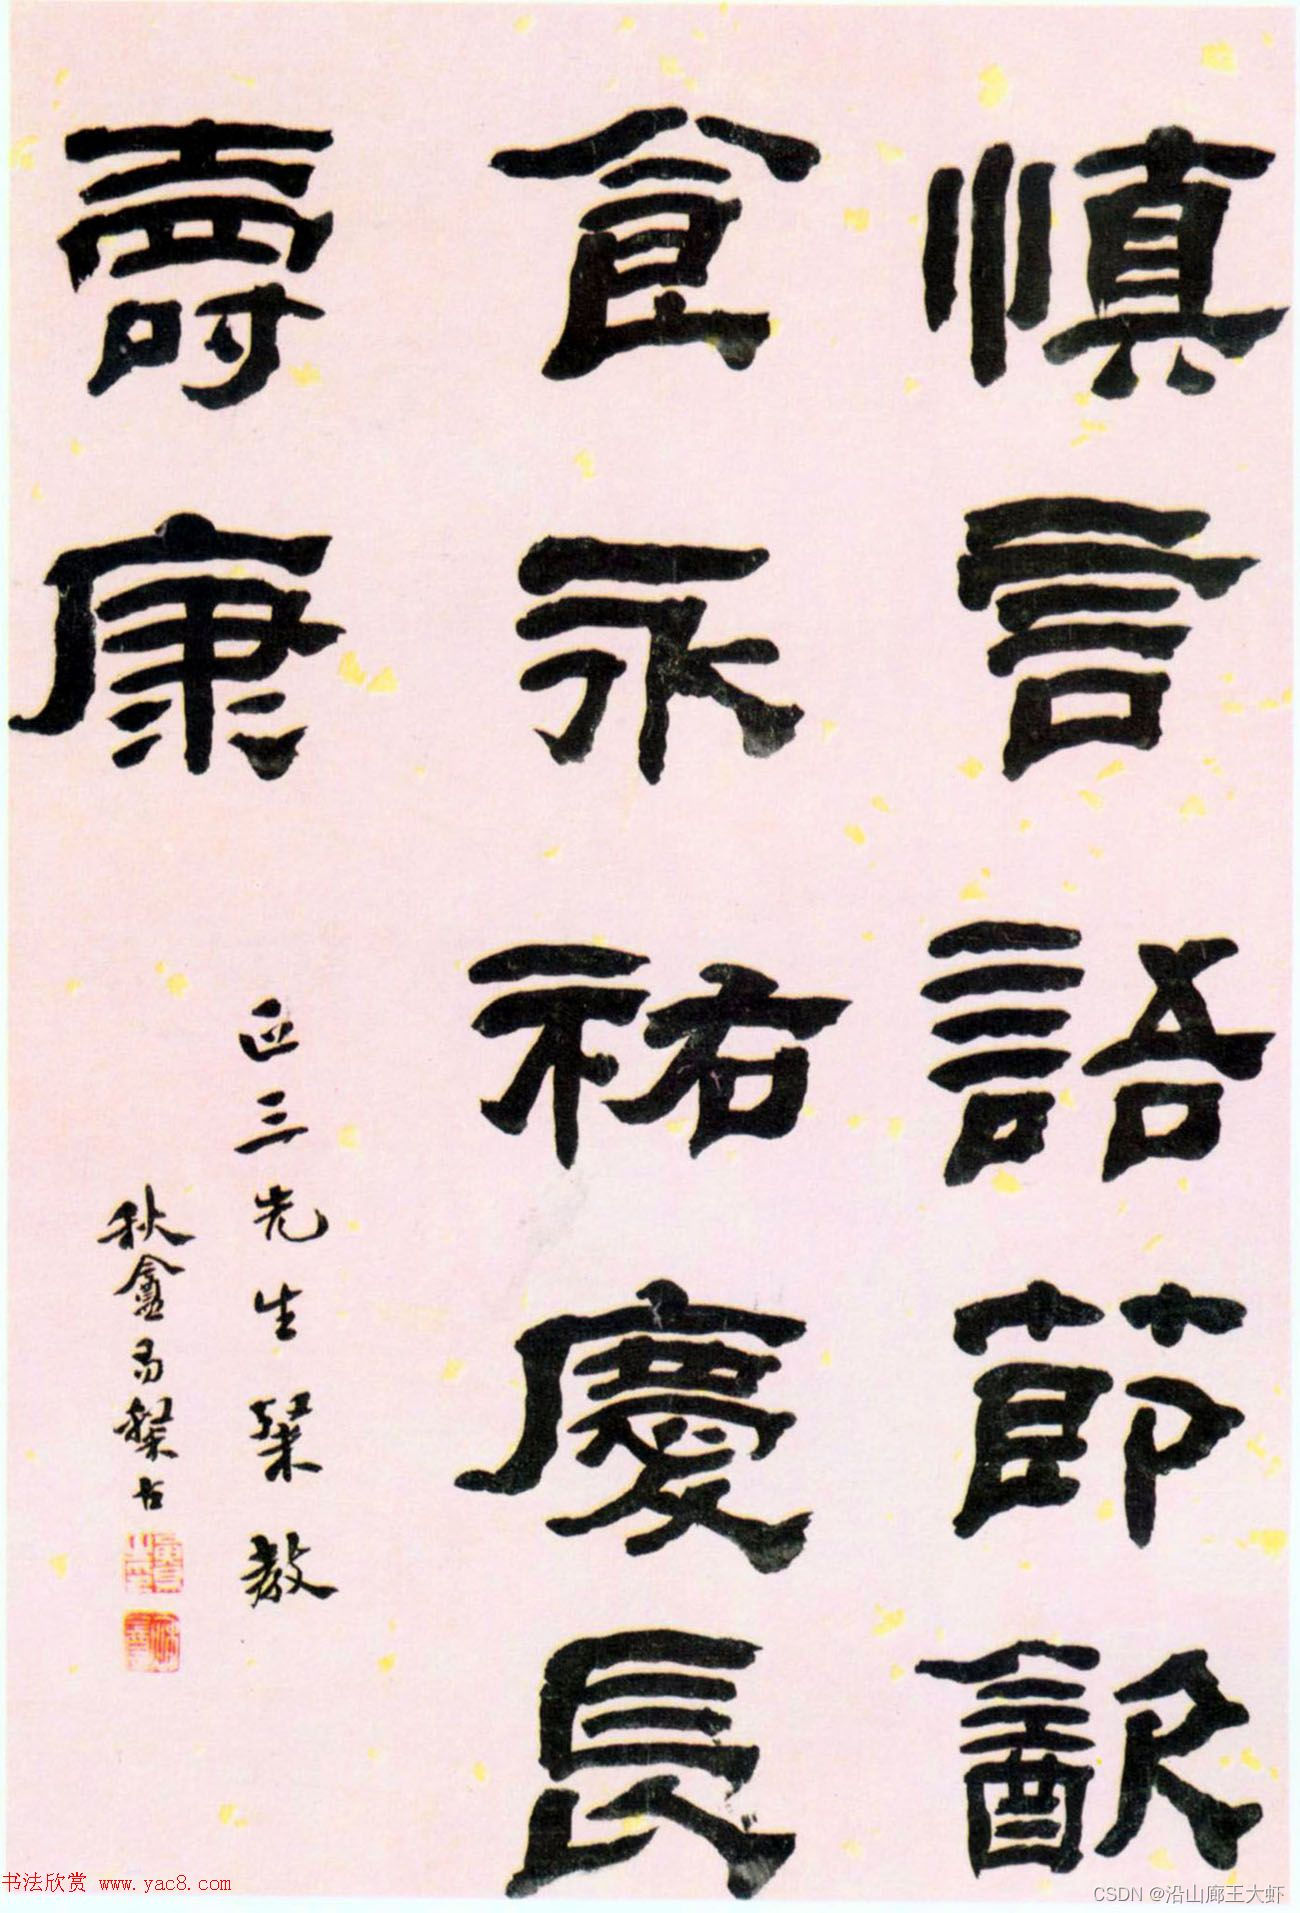 慎言語節㱃
食永祐慶長
壽康
三先生教
秋盦
书法欣赏 www.yac8.com
CSDN @沿山廊王大虾